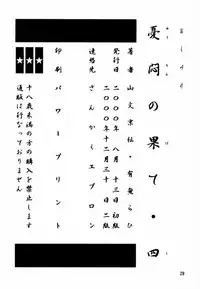 憂悶の果て・四
著者 山文京伝・有無らひ
発行日 二〇〇〇年 八月 十三日 初版
二〇〇〇年十二月三十日 二版
連絡先 さんかくエプロン
印刷 パワープリント
★★★
十八歳未満の方の購入を禁止します
通販は行なっておりません
29